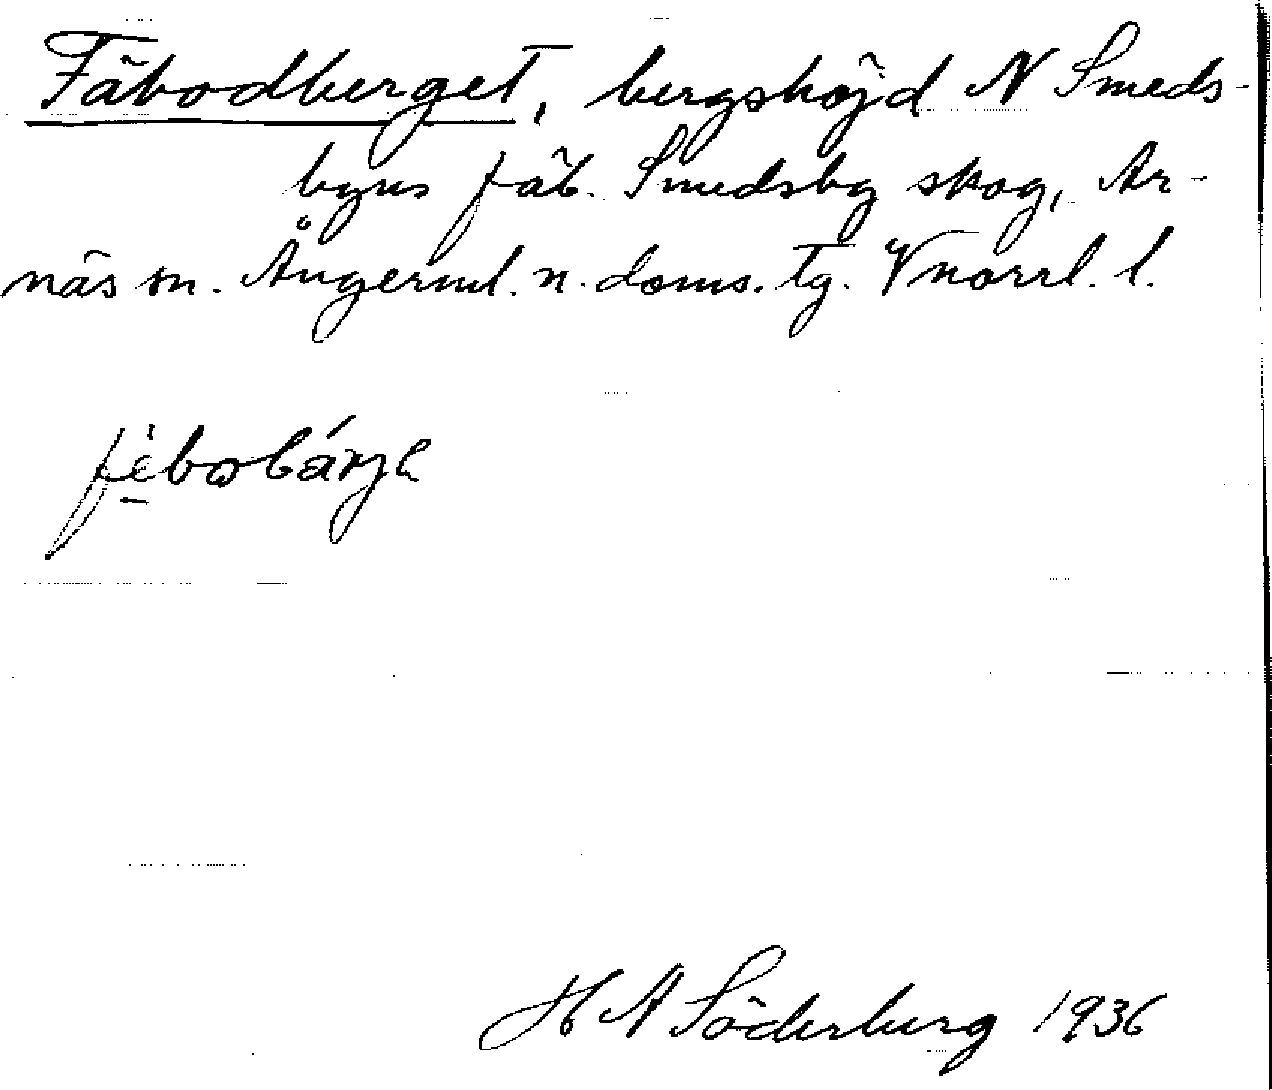 Fäbodberget, bergshöjd N Smeds-
byns fäb. Smedsby skog, Ar-
näs sn. Ångerml. n. doms. tg. Vnorrl. l.
H A Söderberg 1936